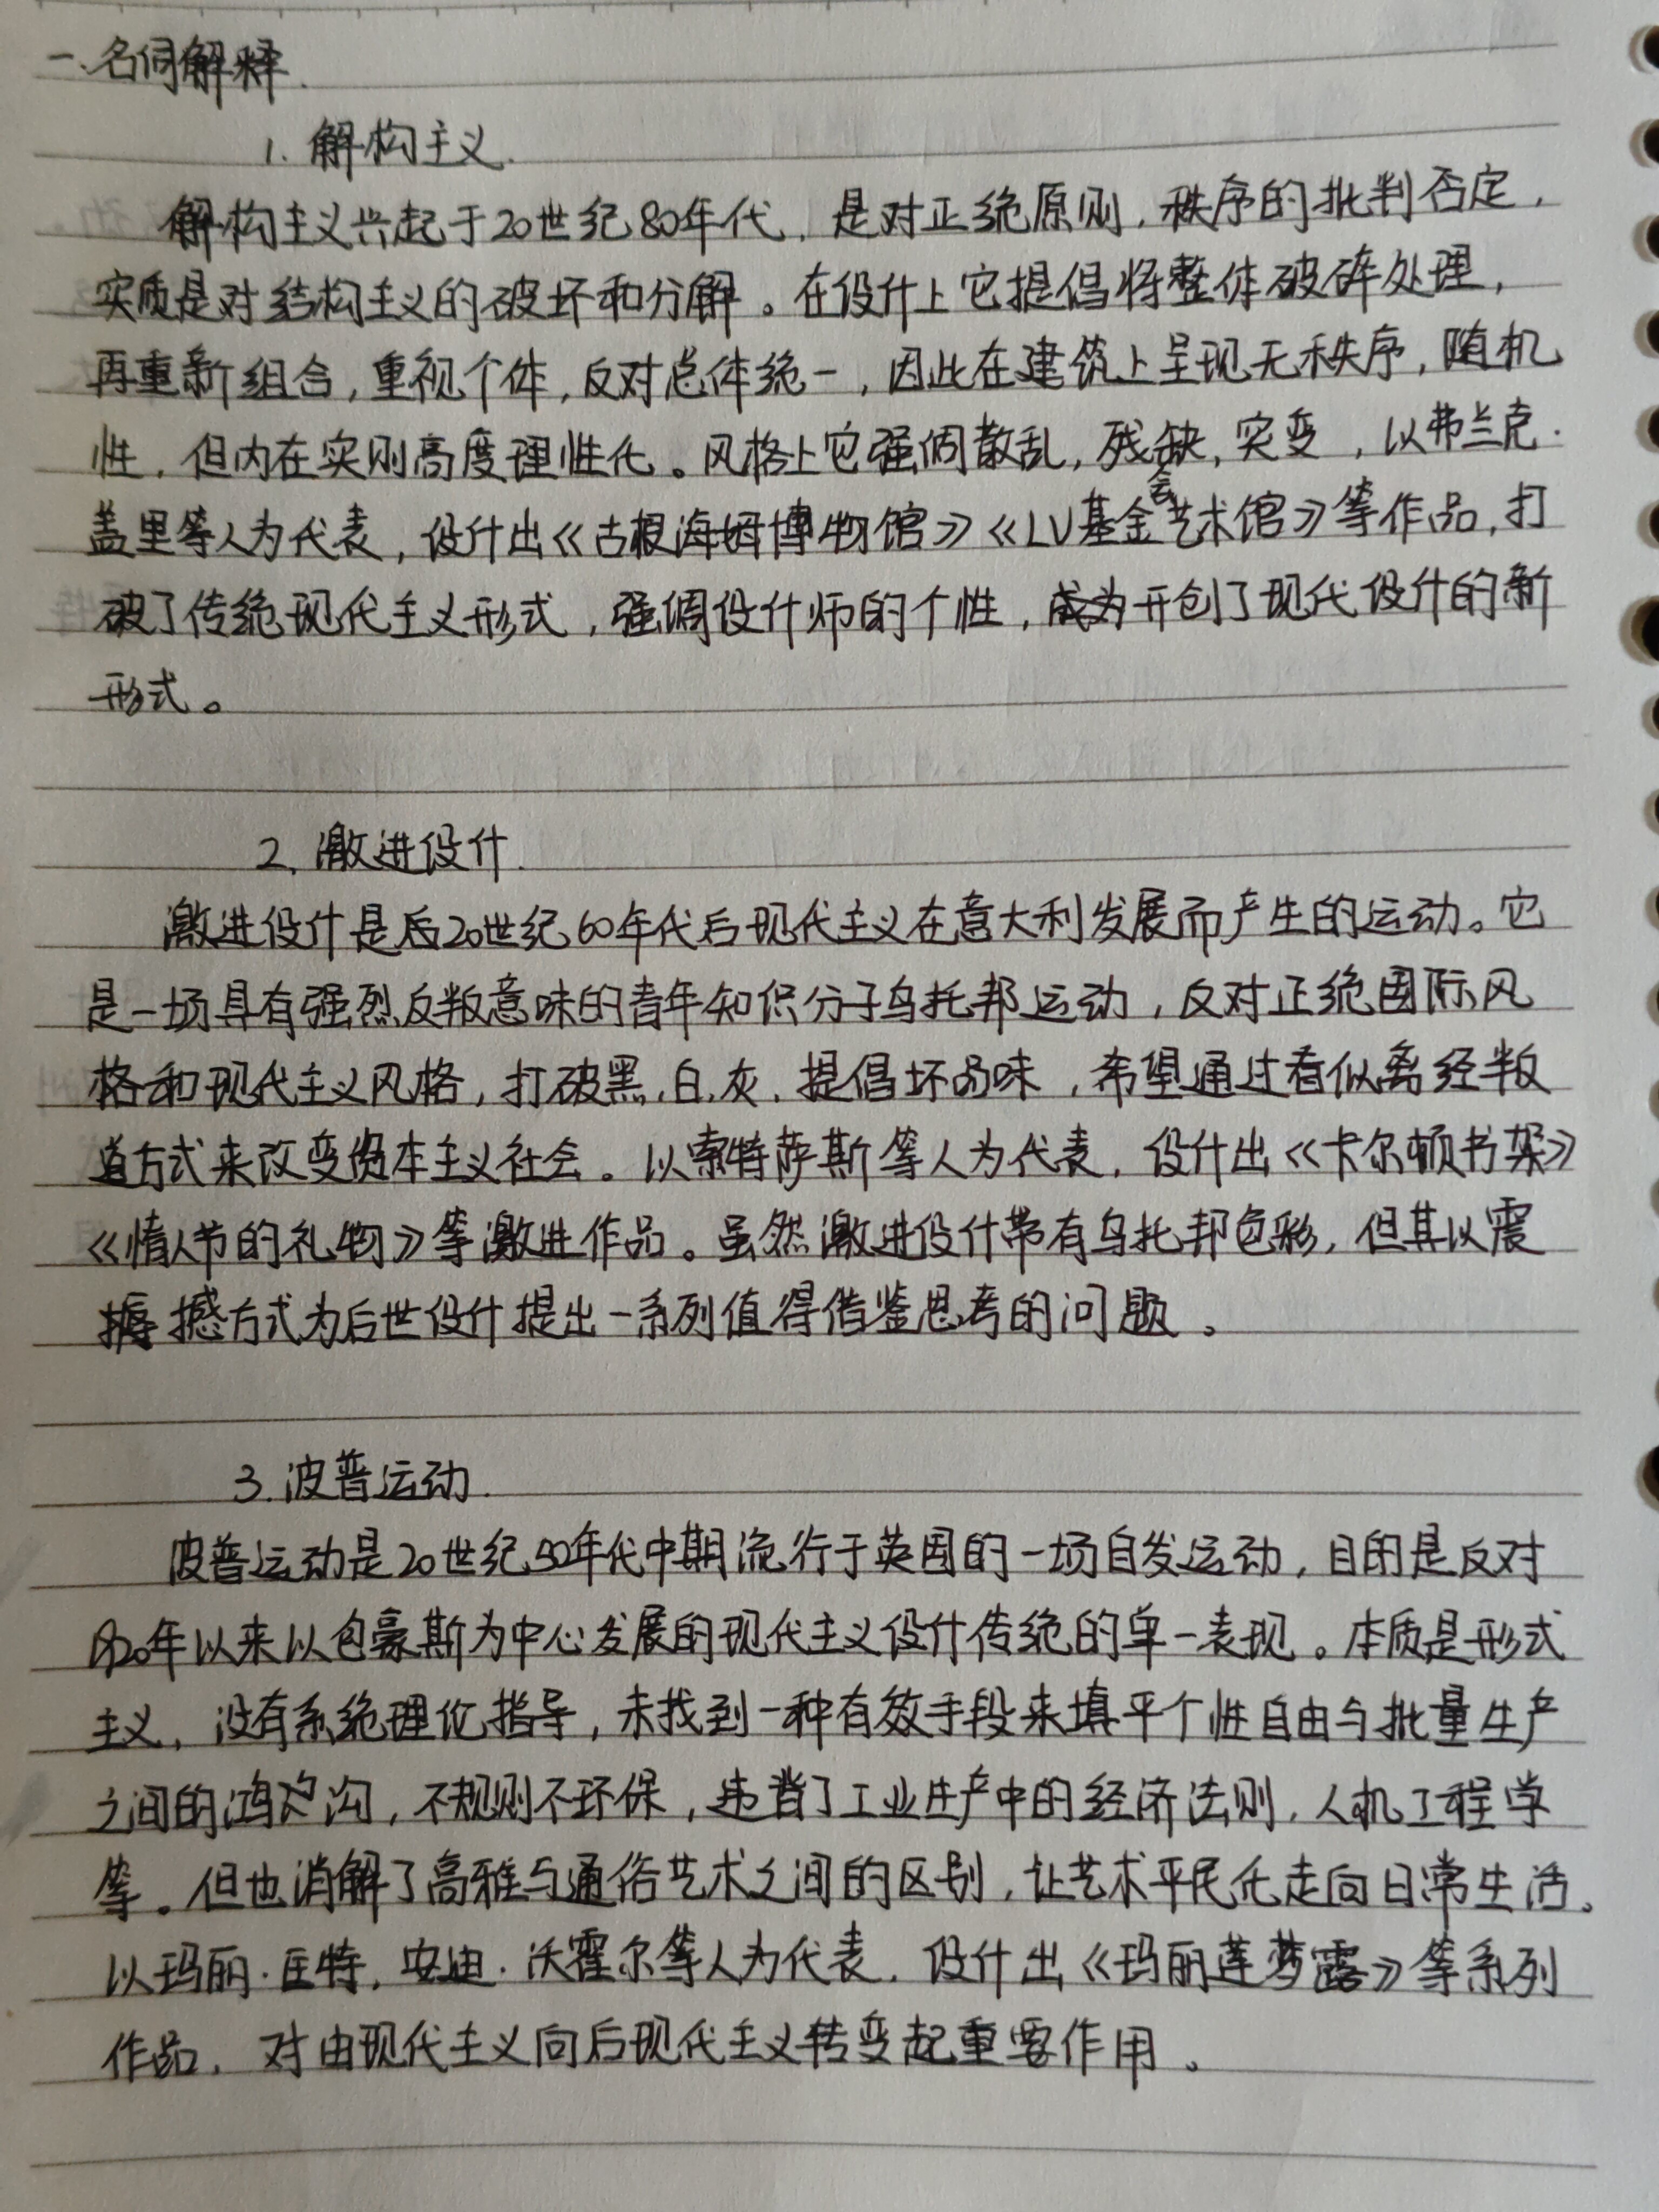 一.名词解释.
1. 解构主义.
解构主义兴起于20世纪80年代，是对正统原则，秩序的批判否定，
实质是对结构主义的破坏和分解。在设计上它提倡将整体破碎处理，
再重新组合，重视个体，反对总体统一，因此在建筑上呈现无秩序，随机
性，但内在实则高度理性化。风格上它强调散乱，残缺，突变，以弗兰克·
盖里等人为代表，设计出《古根海姆博物馆》《LV基金会艺术馆》等作品，打
破了传统现代主义形式，强调设计师的个性，开创了现代设计的新
形式。
2. 激进设计.
激进设计是20世纪60年代后现代主义在意大利发展而产生的运动。它
是一场具有强烈反叛意味的青年知识分子乌托邦运动，反对正统国际风
格和现代主义风格，打破黑、白、灰，提倡坏品味，希望通过看似离经叛
道方式来改变资本主义社会。以索特萨斯等人为代表，设计出《卡尔顿书架》
《情人节的礼物》等激进作品。虽然激进设计带有乌托邦色彩，但其以震
撼方式为后世设计提出一系列值得借鉴思考的问题。
3. 波普运动.
波普运动是20世纪50年代中期流行于英国的一场自发运动，目的是反对
20年以来以包豪斯为中心发展的现代主义设计传统的单一表现。本质是形式
主义，没有系统理论指导，未找到一种有效手段来填平个性自由与批量生产
之间的鸿沟，不规则不环保，违背了工业生产中的经济法则，人机工程学
等。但也消解了高雅与通俗艺术之间的区别，让艺术平民化走向日常生活。
以玛丽·匡特，安迪·沃霍尔等人为代表，设计出《玛丽莲梦露》等系列
作品，对由现代主义向后现代主义转变起重要作用。